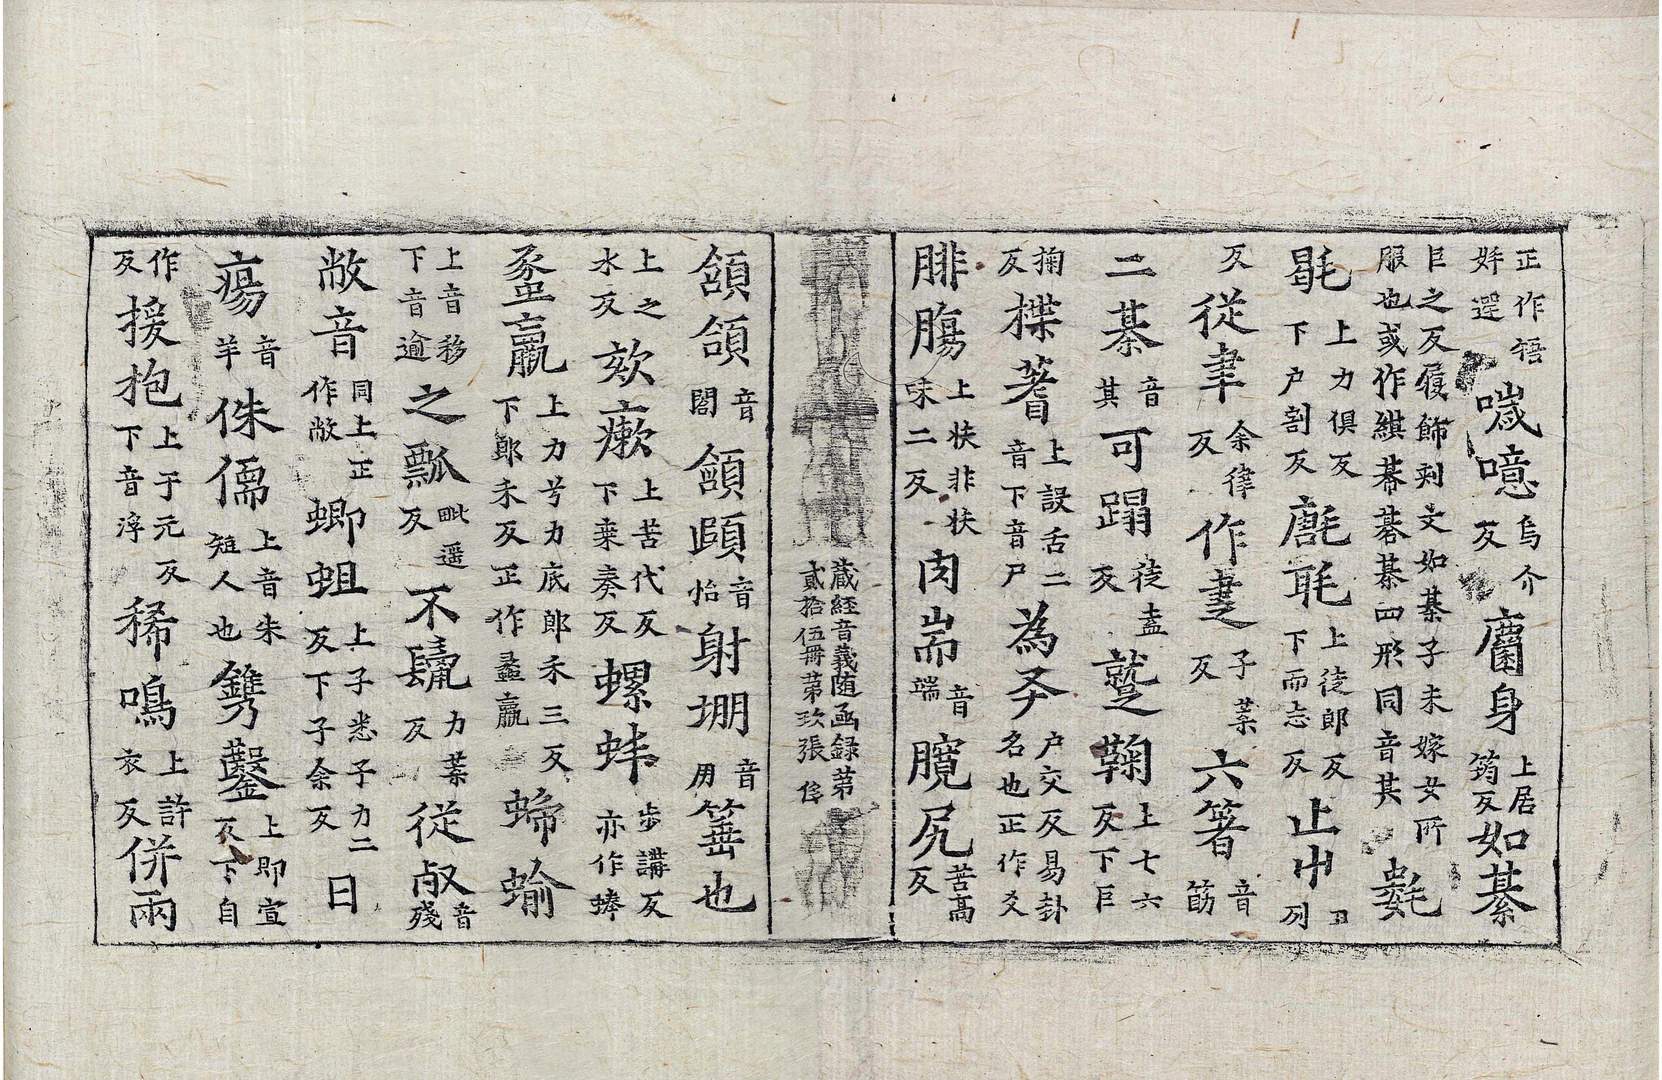 正作妌選噦噫烏介反麕身上居筠反如綦
巨之反履飾刾文如綦子未嫁女所服也或作綨綦碁綦四形同音其氀
毼上力俱反下户割反㲯毦上徒郎反下而志反止屮列
反從聿余律反作疌子葉反六箸音筯
二綦音其可蹋徒盍反蹵鞠上七六反下巨
掬反揲蓍上設舌二音下音尸為爻户交反易卦名也正作爻
腓膓上扶非扶味二反肉耑音端臗尻苦高反
藏經音義随函録第貳拾伍冊第玖張
頷頜音閤頷頤音怡射堋音用箠也
上之水反欬瘶上苦代反下桒奏反螺蚌步講反亦作蜯
蟸蠃上力兮力底郎禾三反下郎禾反正作蠡蠃蝷蝓
上音移下音逾之瓢毗遥反不鬣力葉反從㱚音殘
敝音同上正作敝蝍蛆上子悉子力二反下子余反曰
瘍音羊侏儒上音朱短人也鐫鑿上即宣反下自
作反援抱上于元反下音浮稀鳴上許衣反併兩